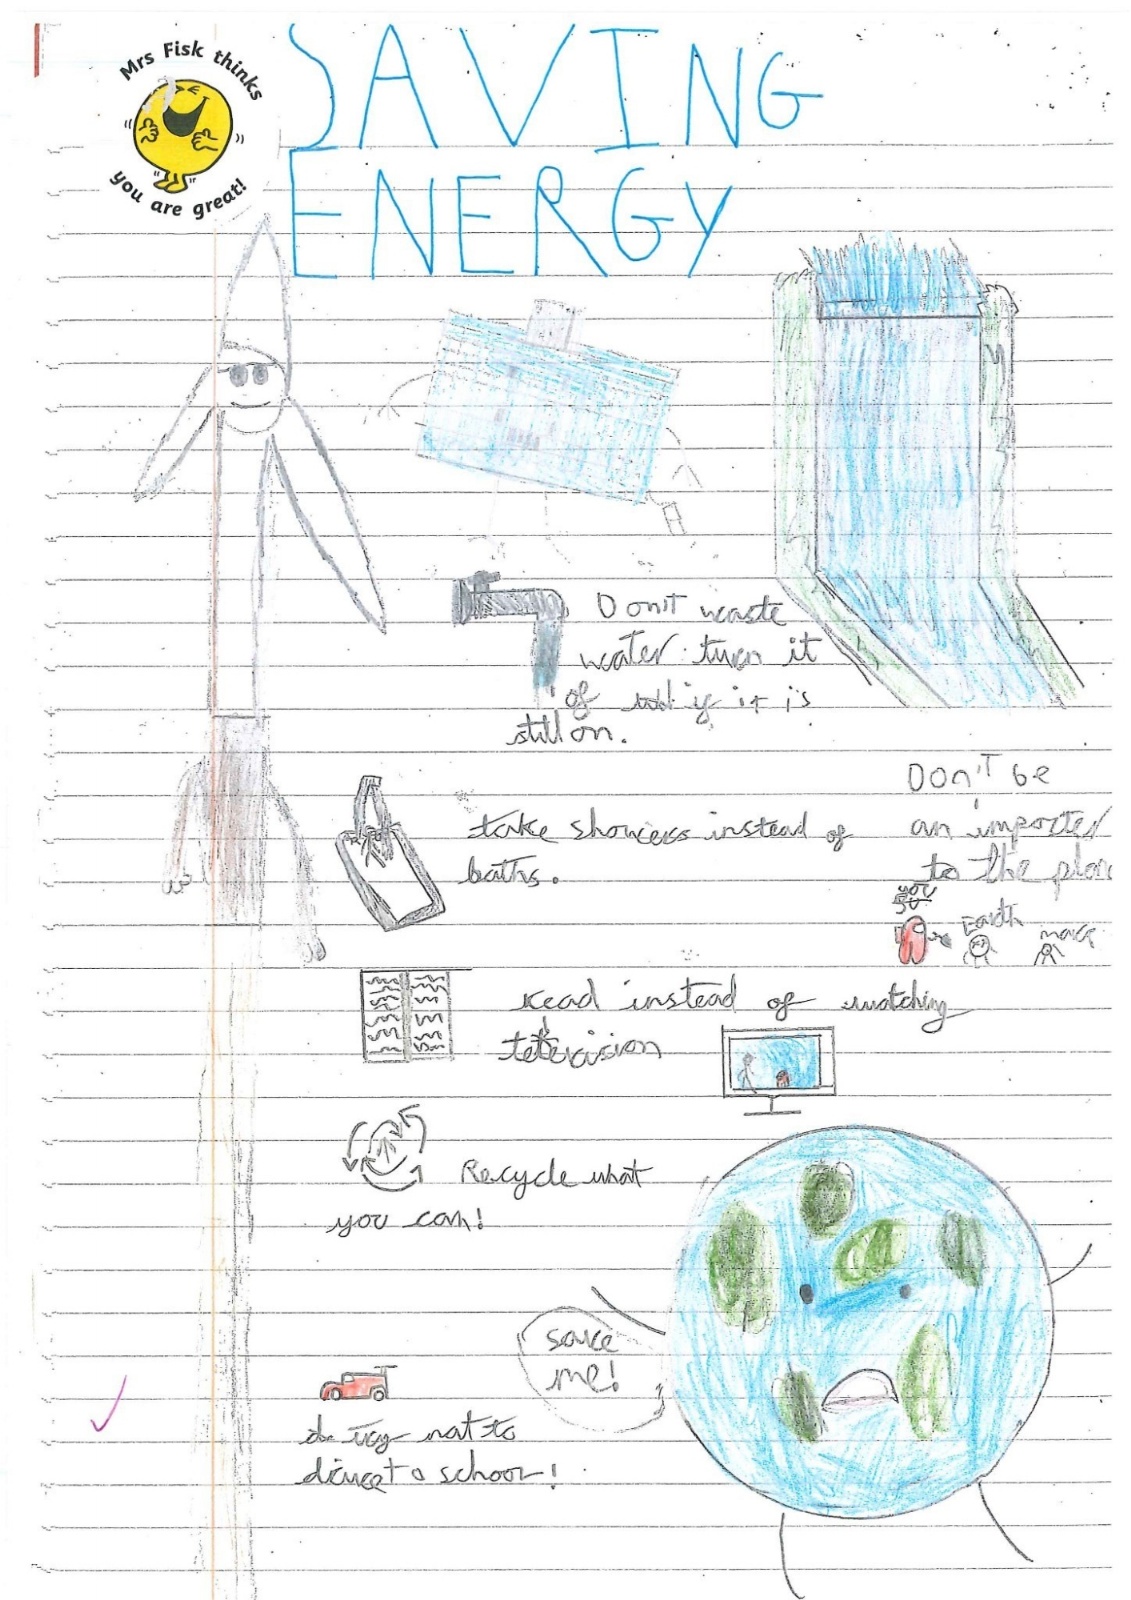 Mrs Fisk thinks
you are great!
SAVING
ENERGY
Don't waste
water turn it
of if it is
still on.
Don't be
an imposter
to the plan
you
Earth
take showers instead of
baths.
Read instead of watching
television
Recycle what
you can!
save
me!
try not to
drive to school!